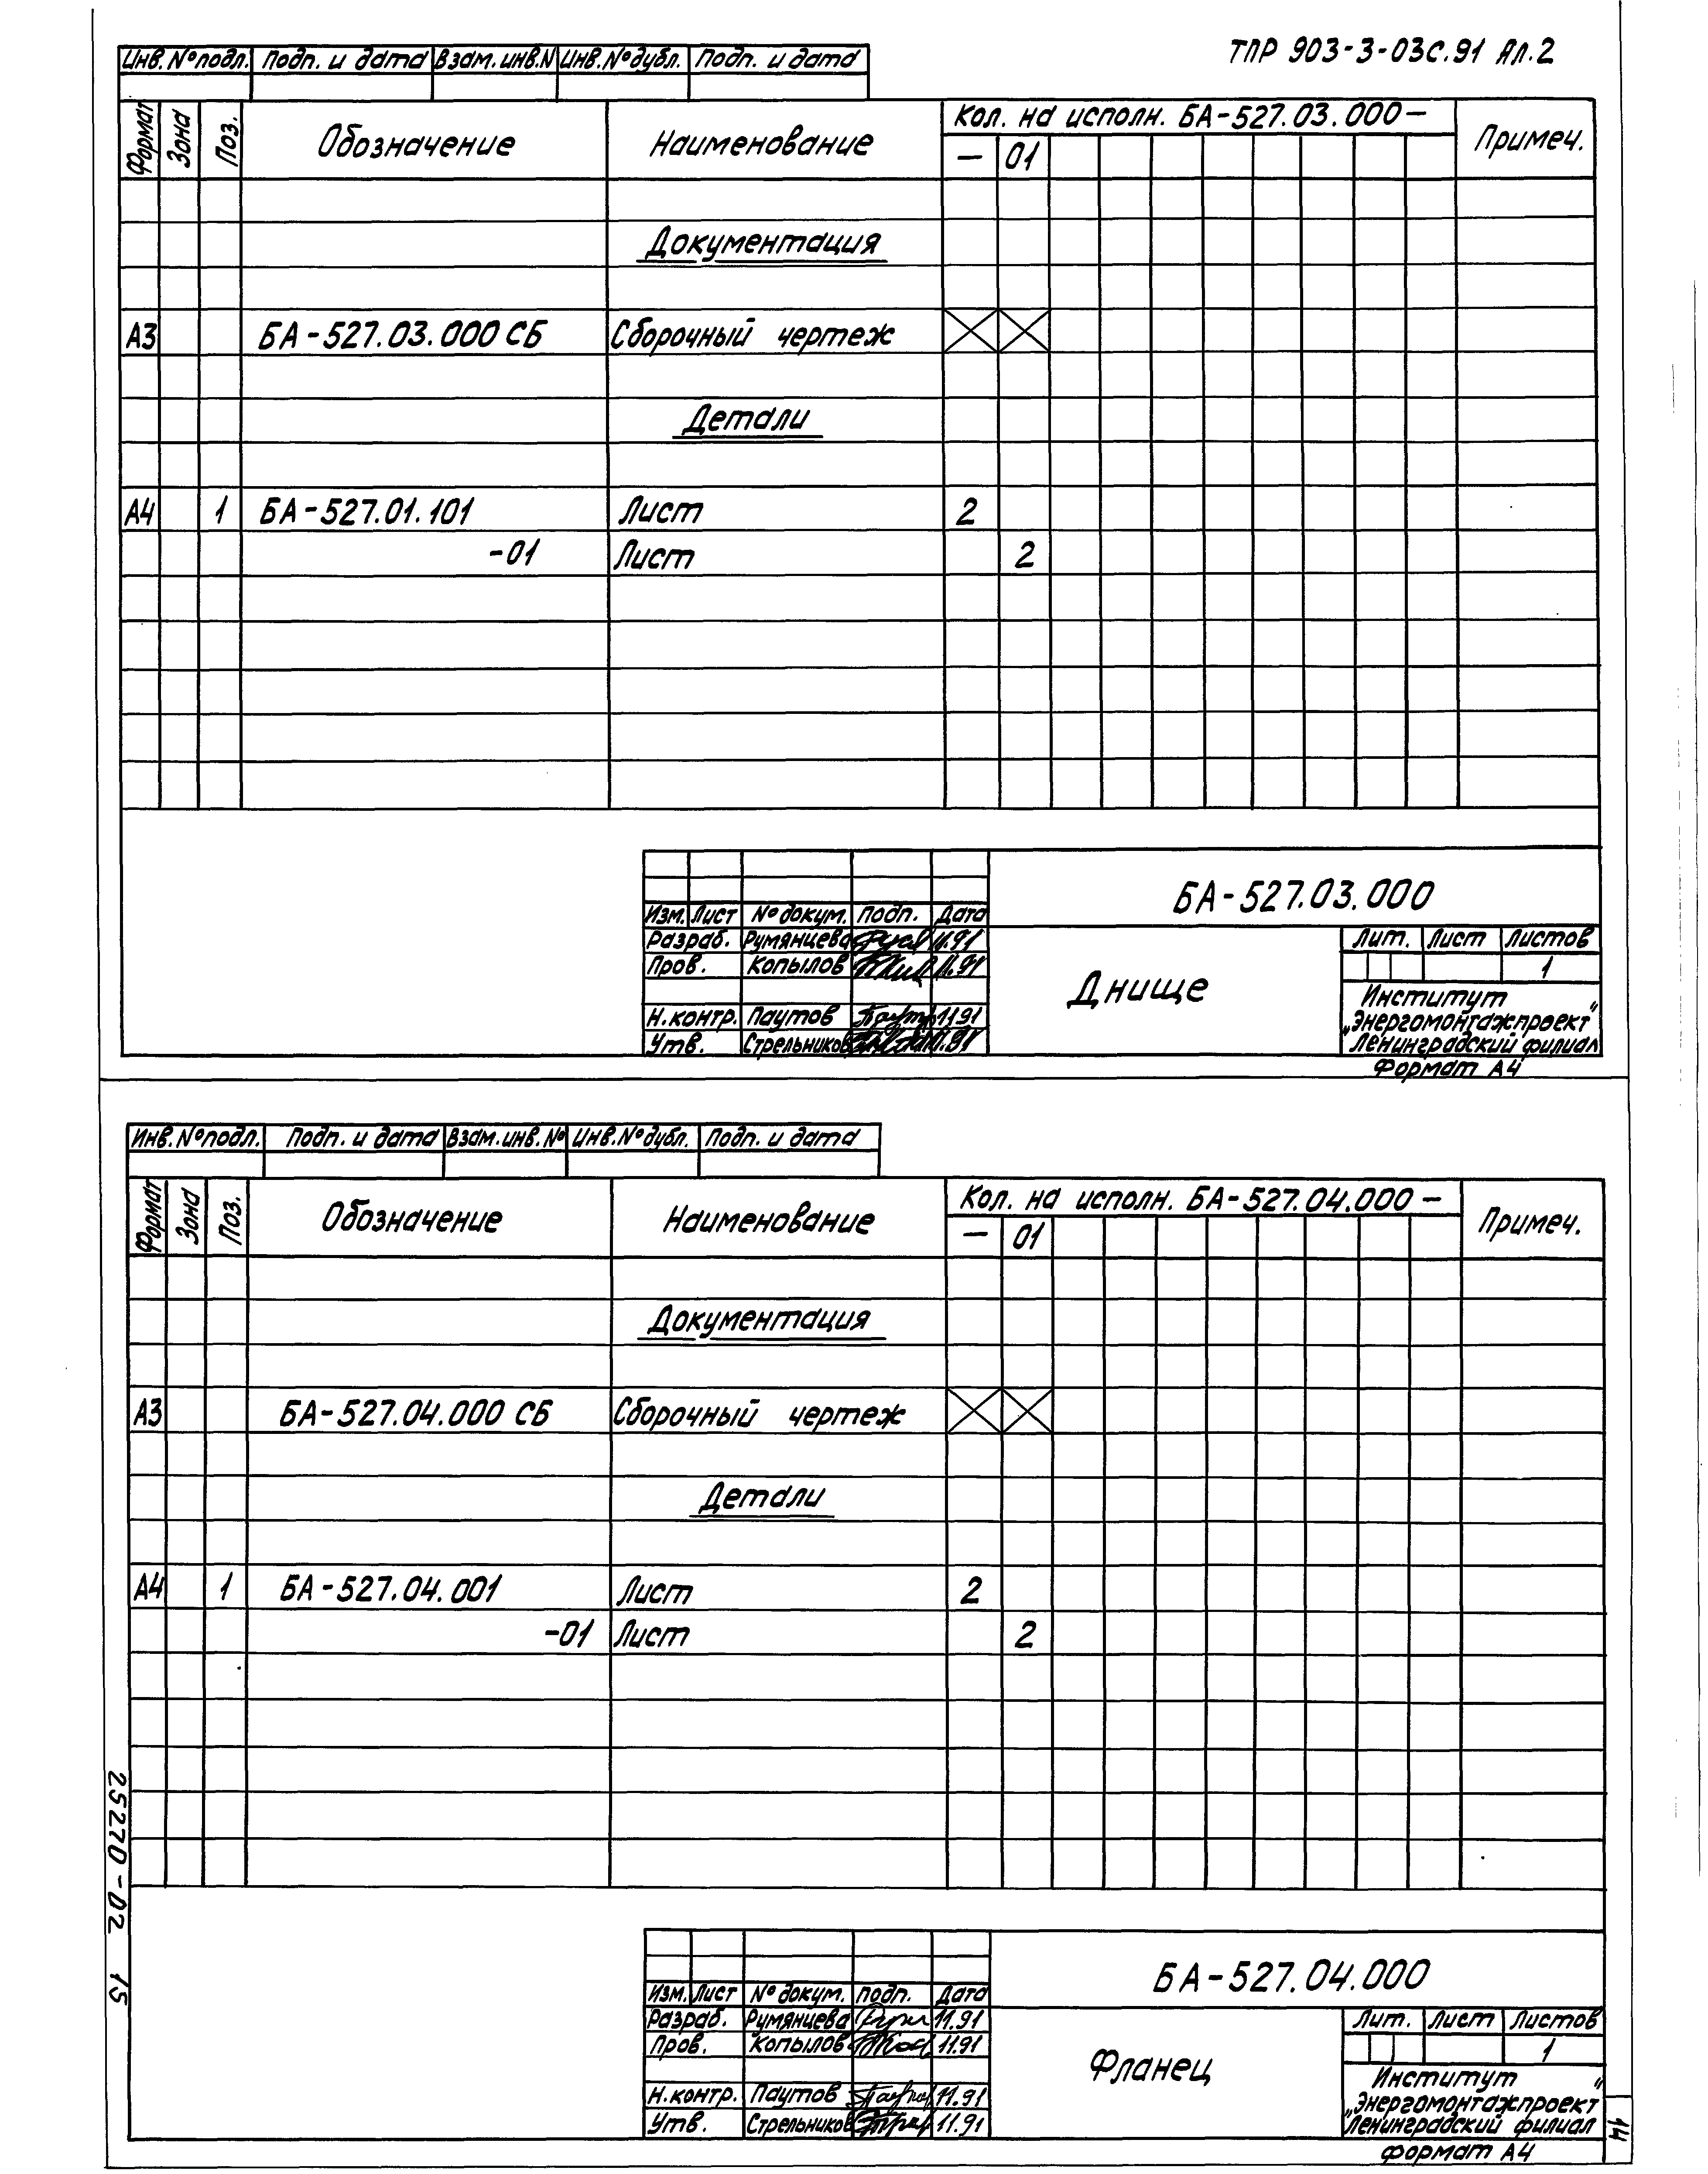 ТПР 903-3-03С.91 Ал.2
Инв. № подл. Подп. и дата Взам. инв. N Инв. № дубл. Подп. и дата
Формат Зона Поз. Обозначение Наименование Кол. на исполн. БА-527.03.000- Примеч.
- 01
Документация
А3 БА-527.03.000 СБ Сборочный чертеж
Детали
А4 1 БА-527.01.101 Лист 2
-01 Лист 2
БА-527.03.000
Изм. Лист № докум. Подп. Дата
Разраб. Румянцева 11.91
Пров. Копылов 11.91
Н.контр. Паутов 11.91
Утв. Стрельников 11.91
Днище
Лит. Лист Листов
1
Институт
„Энергомонтажпроект"
Ленинградский филиал
Формат А4
Инв. № подл. Подп. и дата Взам. инв. № Инв. № дубл. Подп. и дата
Формат Зона Поз. Обозначение Наименование Кол. на исполн. БА-527.04.000- Примеч.
- 01
Документация
А3 БА-527.04.000 СБ Сборочный чертеж
Детали
А4 1 БА-527.04.001 Лист 2
-01 Лист 2
БА-527.04.000
Изм. Лист № докум. Подп. Дата
Разраб. Румянцева 11.91
Пров. Копылов 11.91
Н.контр. Паутов 11.91
Утв. Стрельников 11.91
Фланец
Лит. Лист Листов
1
Институт
„Энергомонтажпроект"
Ленинградский филиал
формат А4
25270-02 15
14